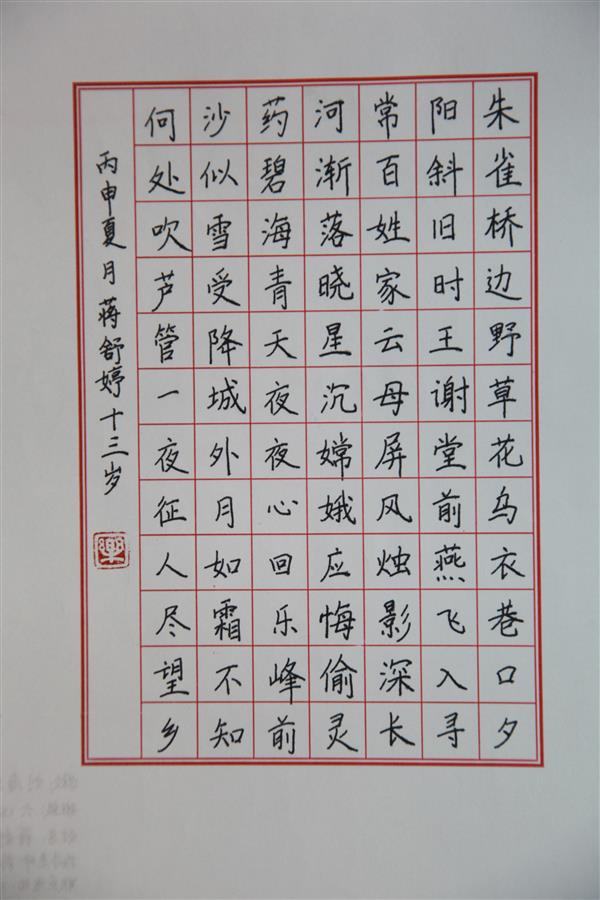 朱雀桥边野草花乌衣巷口夕
阳斜旧时王谢堂前燕飞入寻
常百姓家云母屏风烛影深长
河渐落晓星沉嫦娥应悔偷灵
药碧海青天夜夜心回乐峰前
沙似雪受降城外月如霜不知
何处吹芦管一夜征人尽望乡
丙申夏月蒋舒婷十三岁